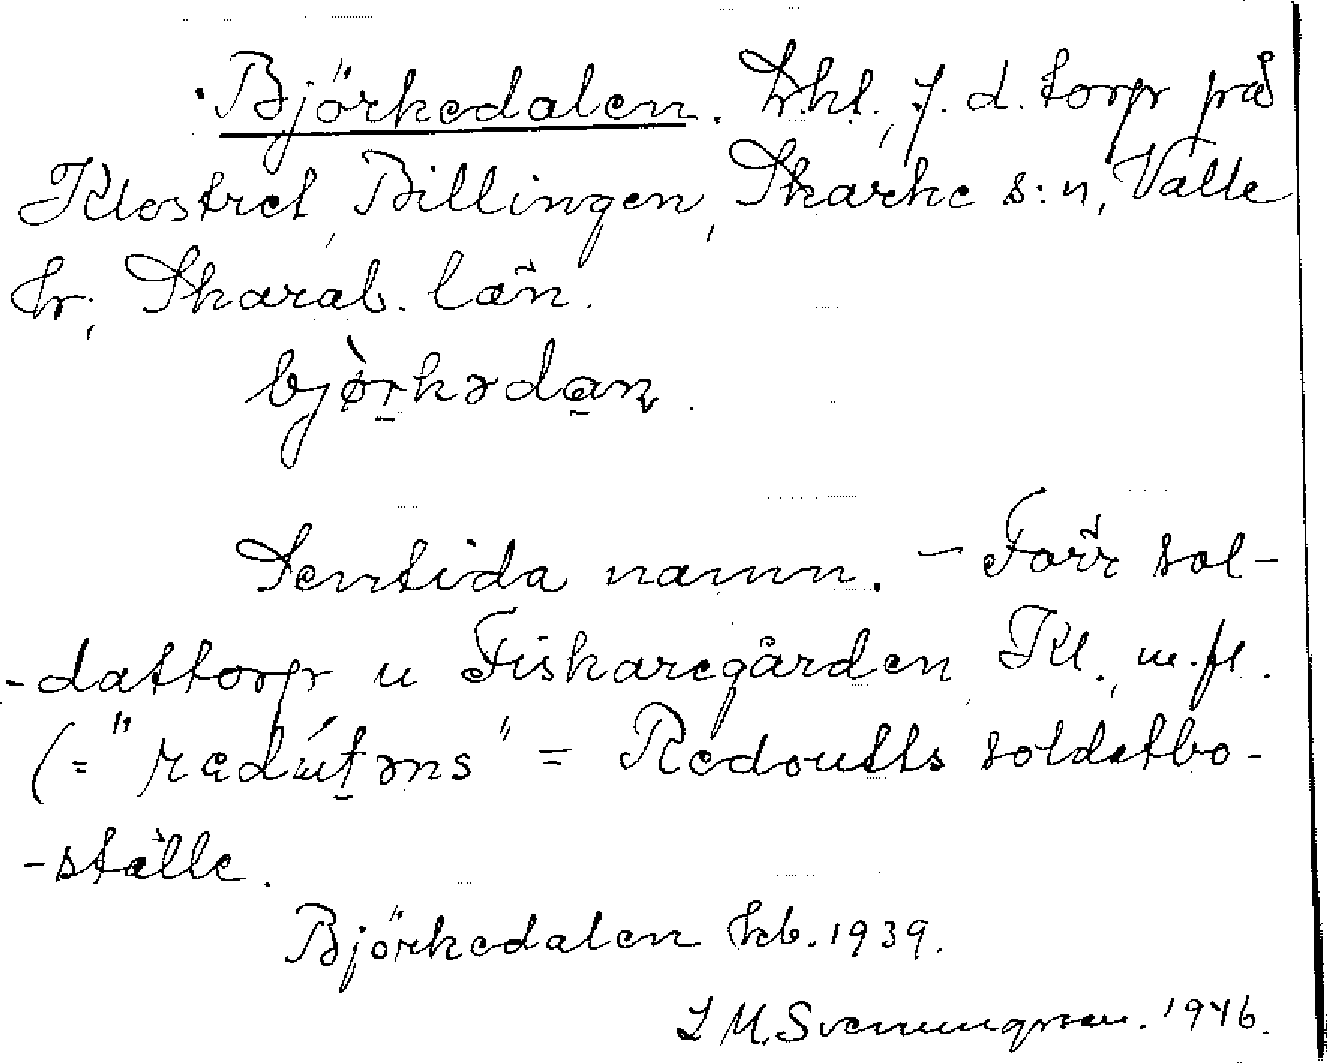 Björkedalen. Lhl., f. d. torp på
Klostret, Billingen, Skarke s:n, Valle
hr, Skarab. län.
bjø̀rkədaɳ.
Sentida namn. – Förr sol-
-dattorp u Fiskaregården Kl., m.fl.
(= "redútəns" = Redoutts soldatbo-
-ställe.
Björkedalen kb. 1939.
I M. Svenungsson. 1946.